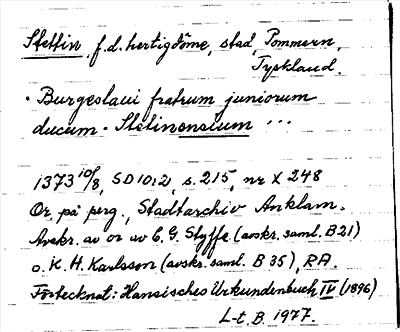 Stettin, f.d. hertigdöme, stad, Pommern,
Tyskland.
· Burgeslaui fratrum juniorum
ducum · Stetinensium ···
1373 10/8, SD 10:2, s. 215, nr X 248
Or. på perg., Stadtarchiv Anklam.
Avskr. av or av C.G. Styffe (avskr. saml. B 21)
o. K.H. Karlsson (avskr. saml. B 35), RA.
Förtecknat: Hansisches Urkundenbuch IV (1896)
L-t. B. 1977.